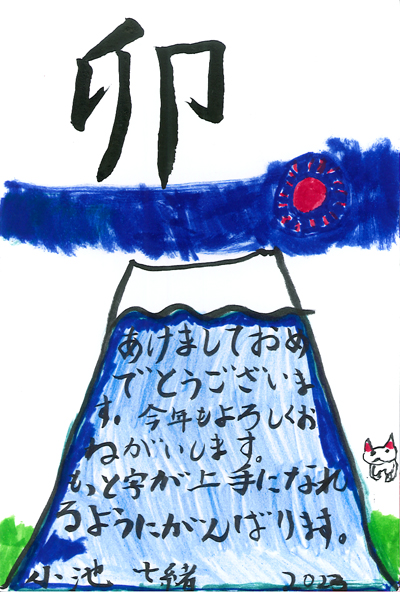 卯
あけましておめ
でとうございま
す。今年もよろしくお
ねがいします。
もっと字が上手になれ
るようにがんばります。
小池 七緒 2023